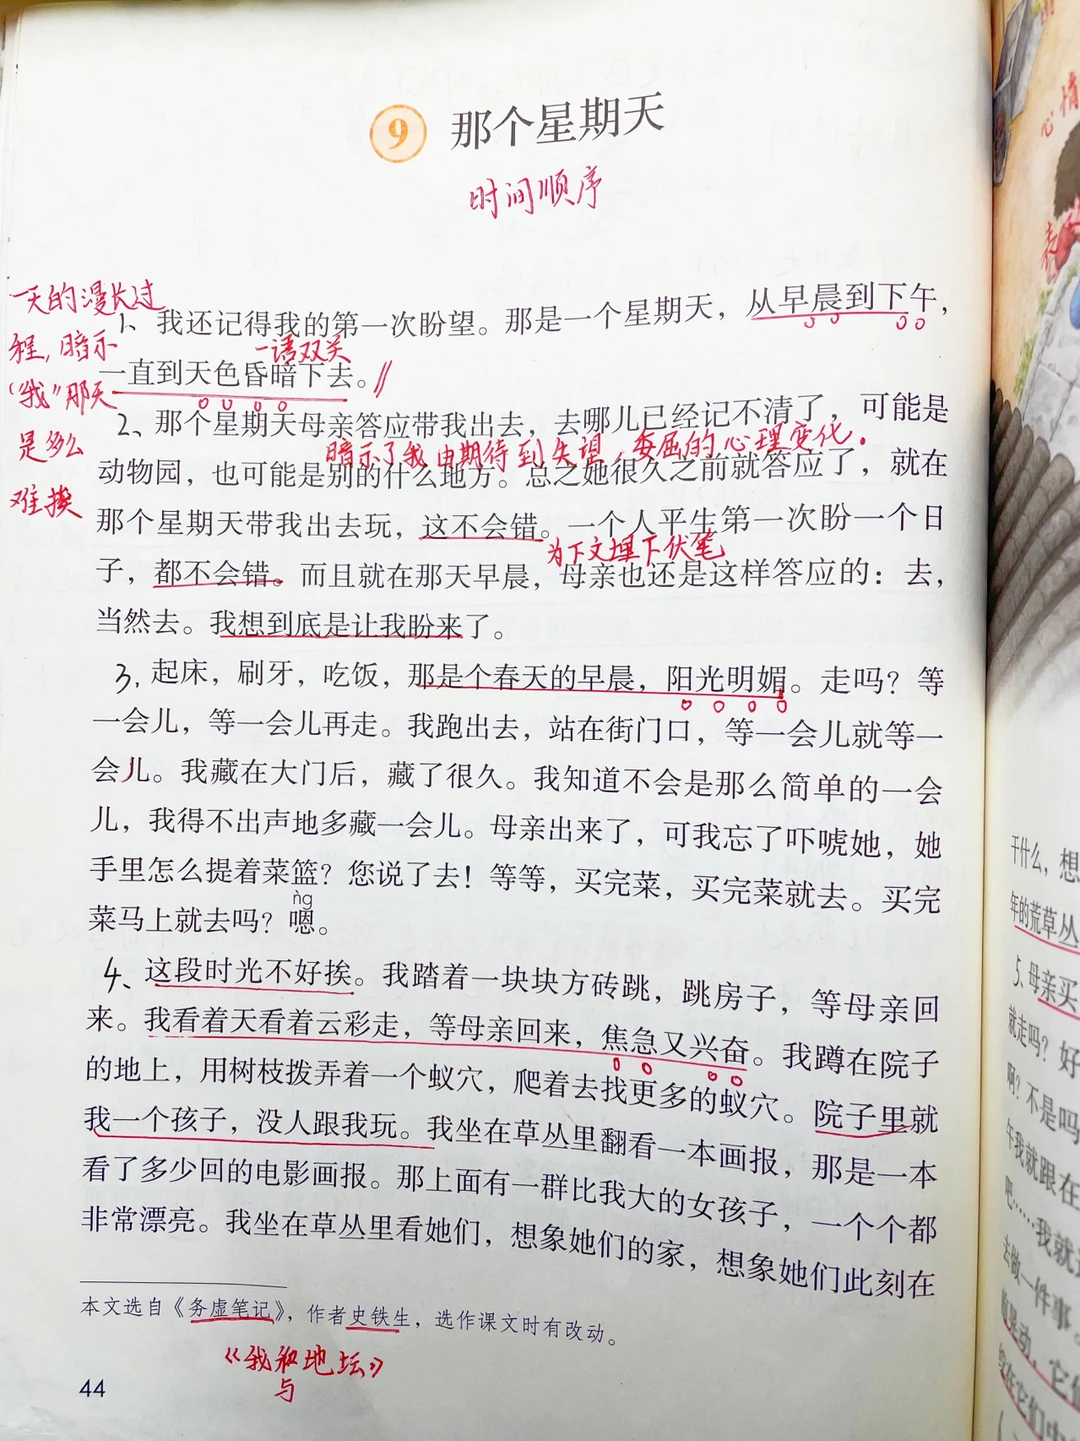 9 那个星期天
时间顺序
一天的漫长过
程,暗示
“我”那天
是多么
难挨
1、我还记得我的第一次盼望。那是一个星期天，从早晨到下午，
一语双关
一直到天色昏暗下去。//
2、那个星期天母亲答应带我出去，去哪儿已经记不清了，可能是
暗示了我由期待到失望,委屈的心理变化.
动物园，也可能是别的什么地方。总之她很久之前就答应了，就在
那个星期天带我出去玩，这不会错。一个人平生第一次盼一个日
为下文埋下伏笔
子，都不会错。而且就在那天早晨，母亲也还是这样答应的：去，
当然去。我想到底是让我盼来了。
3. 起床，刷牙，吃饭，那是个春天的早晨，阳光明媚。走吗？等
一会儿，等一会儿再走。我跑出去，站在街门口，等一会儿就等一
会儿。我藏在大门后，藏了很久。我知道不会是那么简单的一会
儿，我得不出声地多藏一会儿。母亲出来了，可我忘了吓唬她，她
手里怎么提着菜篮？您说了去！等等，买完菜，买完菜就去。买完
ǹg
菜马上就去吗？嗯。
4、这段时光不好挨。我踏着一块块方砖跳，跳房子，等母亲回
来。我看着天看着云彩走，等母亲回来，焦急又兴奋。我蹲在院子
的地上，用树枝拨弄着一个蚁穴，爬着去找更多的蚁穴。院子里就
我一个孩子，没人跟我玩。我坐在草丛里翻看一本画报，那是一本
看了多少回的电影画报。那上面有一群比我大的女孩子，一个个都
非常漂亮。我坐在草丛里看她们，想象她们的家，想象她们此刻在
本文选自《务虚笔记》，作者史铁生，选作课文时有改动。
《我和地坛》
与
44
心情
干什么，想
年的荒草丛
5.母亲买
就走吗？好
啊？不是吗
午我就跟在
吧……我就
去做一件事。